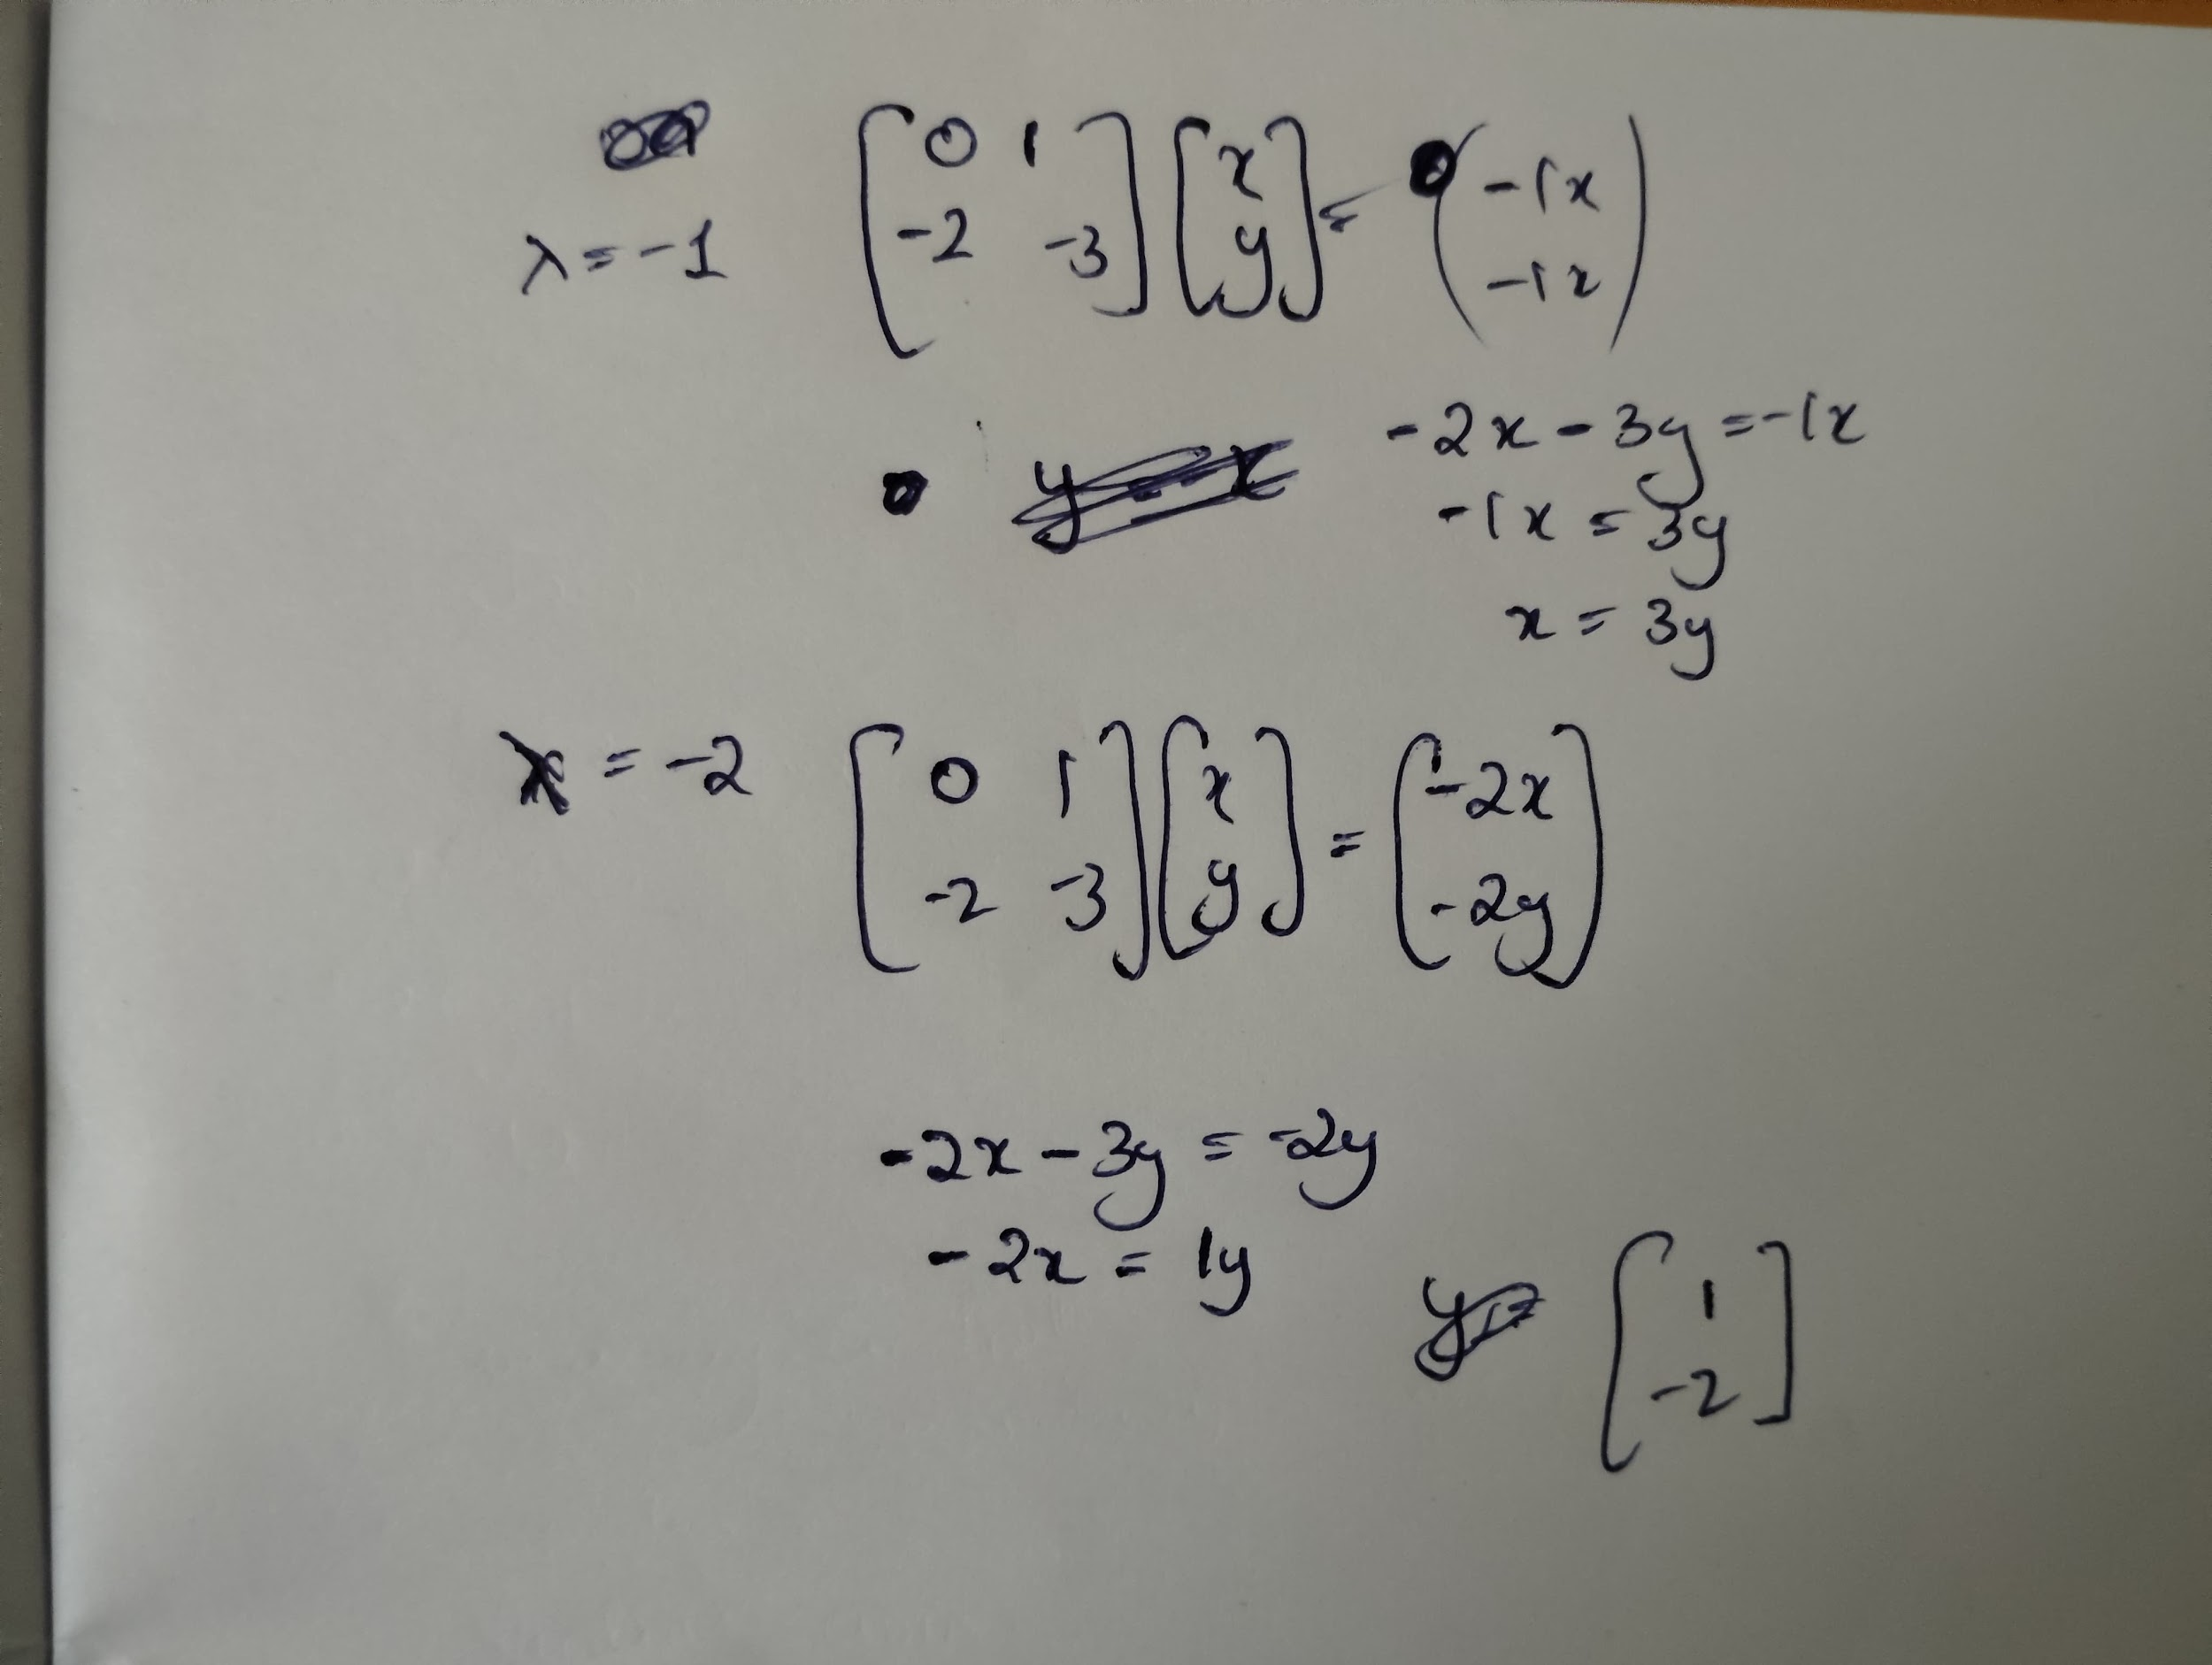 λ = -1 [0 1 -2 -3] [x y] = (-1x -1x)
-2x - 3y = -1x
-1x = 3y
x = 3y
= -2 [0 1 -2 -3] [x y] = (-2x -2y)
-2x - 3y = -2y
-2x = 1y
[1 -2]